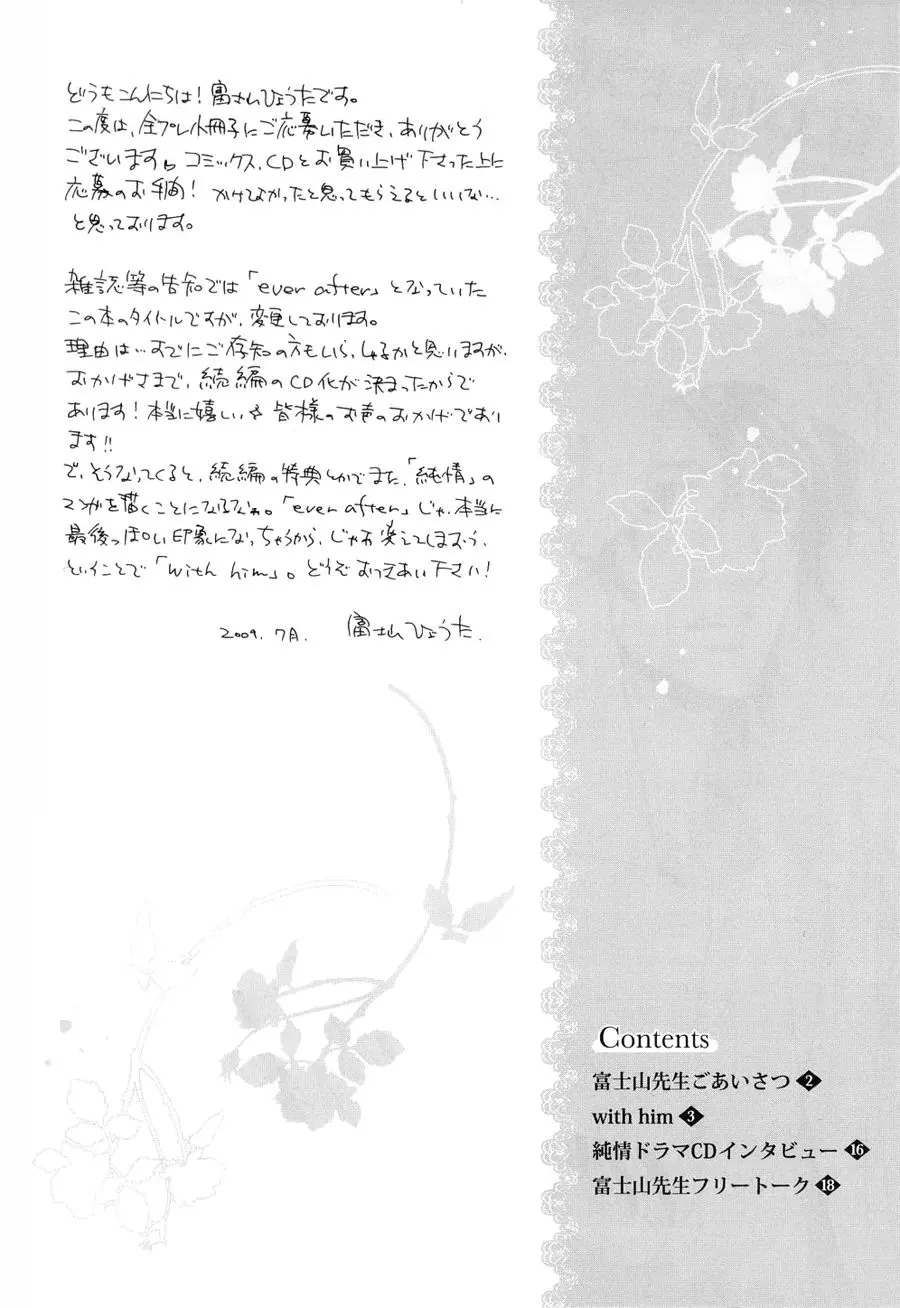 どうもこんにちは！富士山ひょうたです。
この度は、全プレ小冊子にご応募いただき、ありがとう
ございます。コミックス、CDとお買い上げ下さった上に
応募のお手間！かけてよかったと思ってもらえるといいな…
と思っております。
雑誌等の告知では「ever after」となっていた
この本のタイトルですが、変更しております。
理由は…すでにご存知の方もいらっしゃるかと思いますが、
おかげさまで、続編のCD化が決まったからで
あります！本当に嬉しい 皆様のお声のおかげであり
ます!!
で、そうなってくると、続編の特典とかでまた、「純情」の
マンガを描くことになるなぁ。「ever after」じゃ、本当に
最後っぽい印象になっちゃうから、じゃあ変えてしまおう、
ということで「with him」。どうぞおつきあい下さい！
2009.7月. 富士山ひょうた.
Contents
富士山先生ごあいさつ 2
with him 3
純情ドラマCDインタビュー 16
富士山先生フリートーク 18